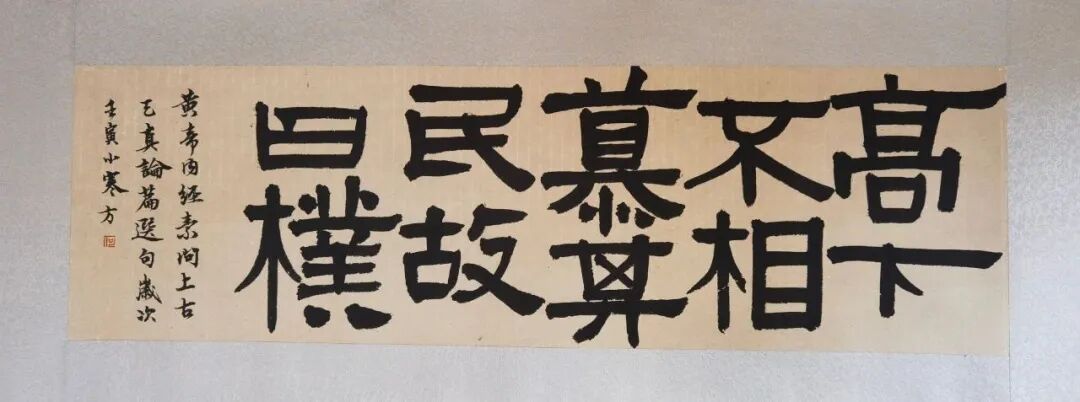 髙下
不相
慕其
民故
曰樸
黄帝内經素問上古
天真論篇選句歲次
壬寅小寒方